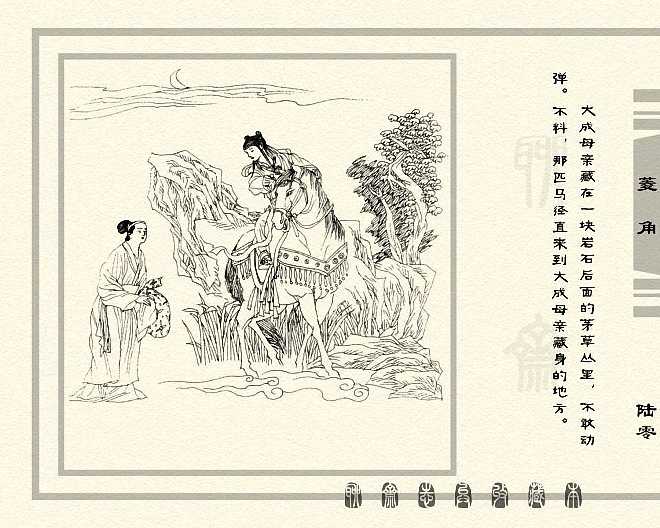 大成母亲藏在一块岩石后面的茅草丛里，不敢动
弹。不料，那匹马径直来到大成母亲藏身的地方。
菱角
陆零
聊斋志异收藏本